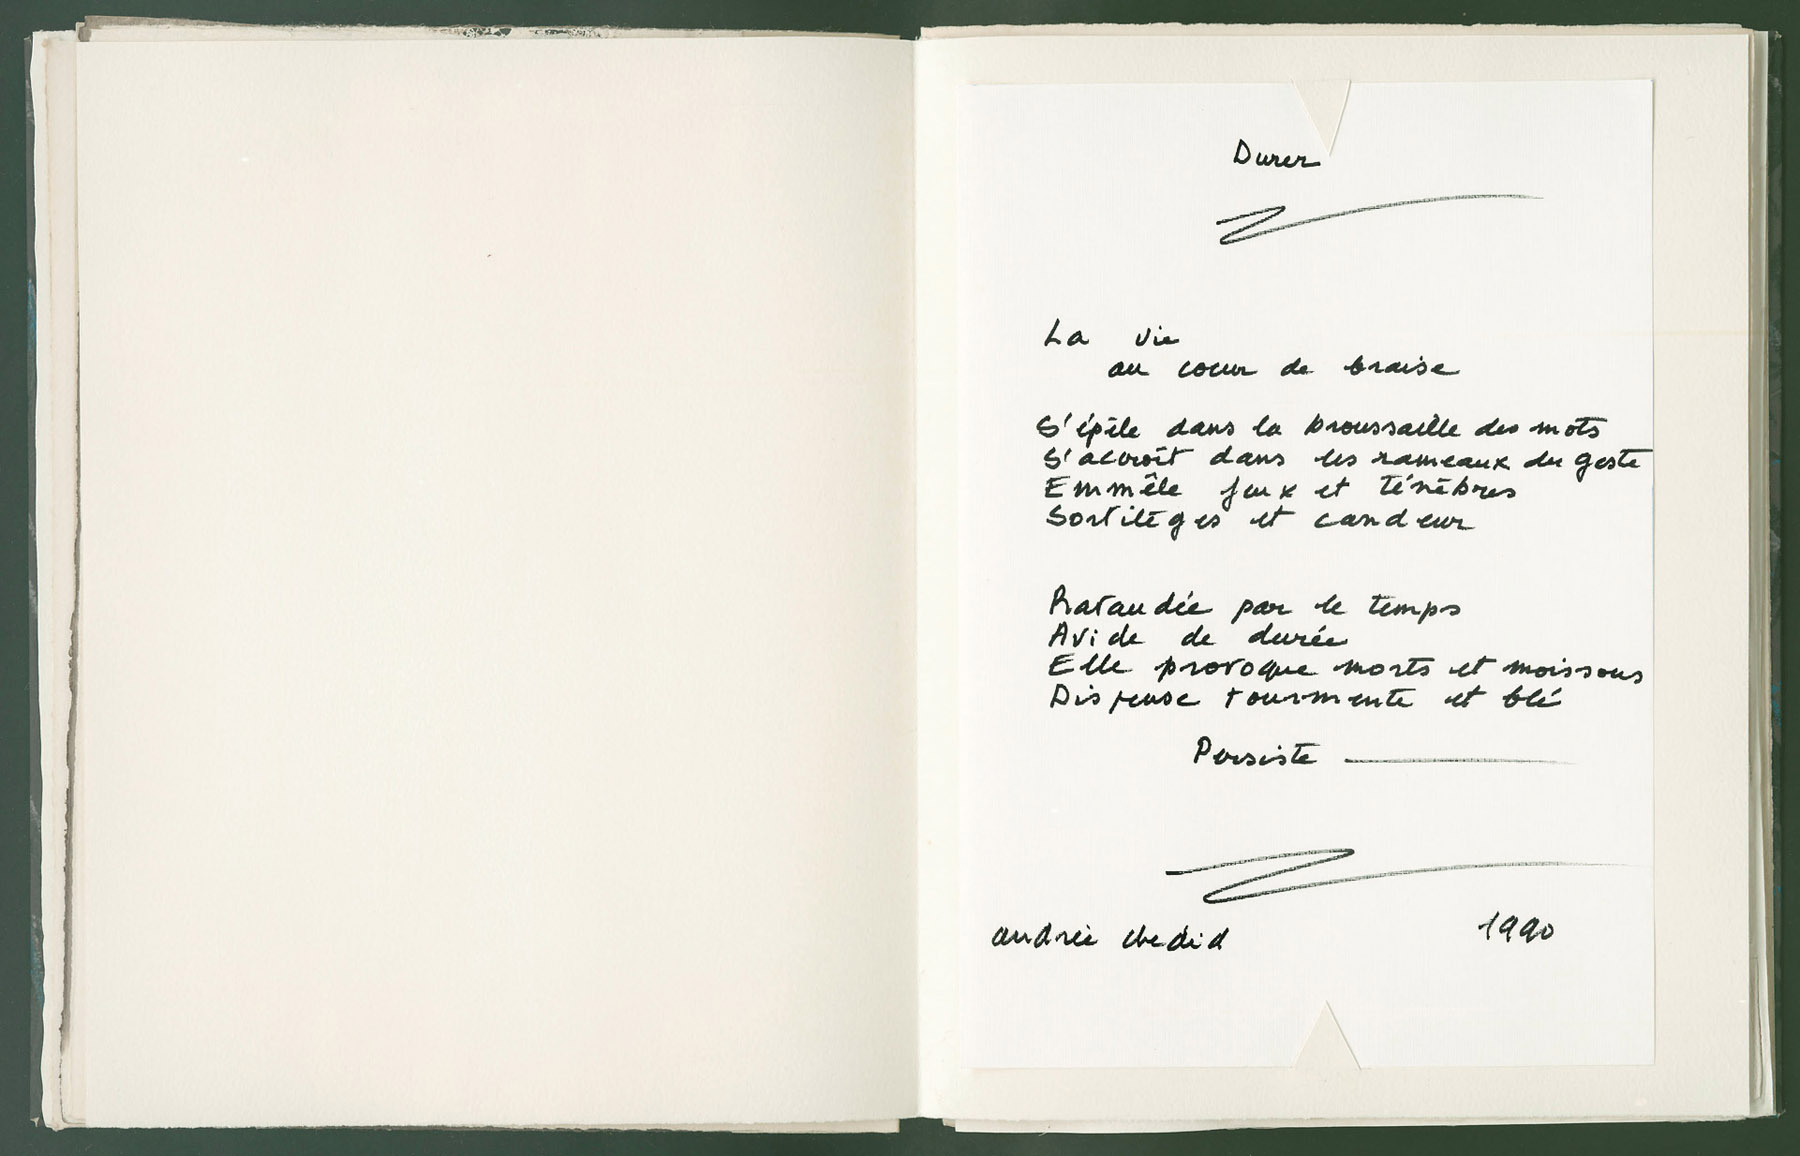 Durer
La vie
au coeur de braise
S'épèle dans la broussaille des mots
S'accroît dans les rameaux du geste
Emmêle feux et ténèbres
Sortilèges et candeur
Ravaudée par le temps
Avide de durée
Elle provoque morts et moissons
Dispense tourmente et blé
Persiste —
andrée chedid 1990